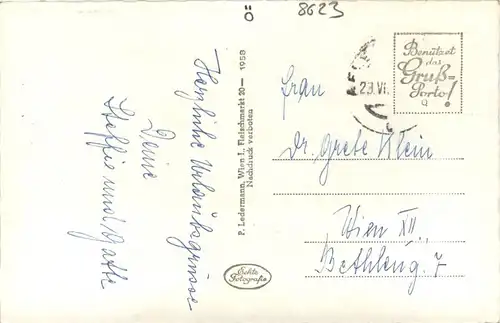 8623
Ö
Herzliche Urlaubsgrüsse
Deine
Steffie und Gatte
P. Ledermann, Wien I., Fleischmarkt 20 — 1958
Nachdruck verboten
Echte
Fotografie
23.VI.
Benützet
das
Gruß=
Porto!
Frau
Dr. Grete Klein
Wien XII.
Bethleng. 7